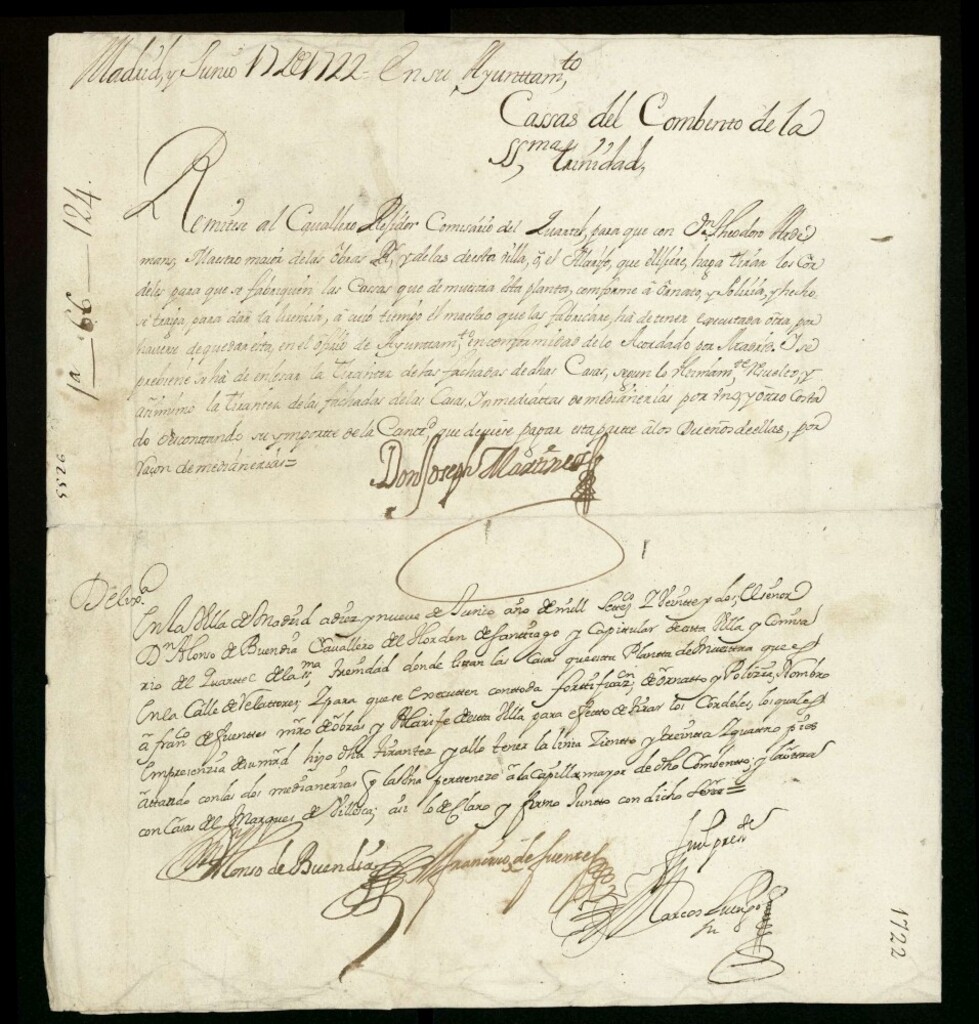 Madrid, y Junio 17 de 1722 = En su Ayunttam.to
Cassas del Combento de la
SS.ma trinidad,
Remitese al Cavallero Rexidor Comisario del Quartel, para que con Dn. Theodoro Arde
mans, Maestro maior de las obras Rs. y de las de esta villa, ô, el Alarife, que elijiere, haga tirar los Cor
deles para que se fabriquen las Cassas que demuestra esta planta, comforme â Ornato, y Polizia, y hecho
se trayga para dar la lizencia, â cuio tiempo el maestro que las fabricare, ha de tener executada otra, por
haverse de quedar esta, en el ofizio de Ayunttam.to en comformidad de lo Acordado por Madrid. Y se
prebiene se ha de enterar la tirantez de las fachadas de dhas Casas, segun lo
asimismo la tirantez de las fachadas de las Casas Inmediattas de medianerias por uno, y otro Costa
do descontando su ymporte de la Cantt.d que deviere pagar esta parte a los Dueños de ellas, por
razon de medianerias =
Don Joseph Martinez
1a — 66 — 124.
9255
Delix.a
En la Villa de Madrid a diez y nueve de Junio año de mill Settez.os Y Veinte y dos; El señor
Dn. Alonso de Buendia Cavallero del Horden de Santiago y Capitular de esta Villa y Comisa
rio del Quartel de la SS.ma Trenidad donde estan las Casas que esta Plantta demuestra que es
En la Calle de Relattores; Y para que se Executten con toda fortificaz.n de Ornatto y Polizia, Nombro
â fran.co de fuentes mro de obras y Alarife de esta Villa para efecto de tirar los Cordeles, los quales
Em presenzia de su mrd hizo dha tirantez y allo tener la linia Zientto y treintta Y quattro pies
attando con las dos medianerias la una pertteneze â la Capilla mayor de dho Combentto; y la otra
con Casas del Marques de Villoca; asi lo declaro y firmo Juntto con dicho señor =
Alonso de Buendia
francisco de fuentes
fui pres.te
Marcos Luengo
1722